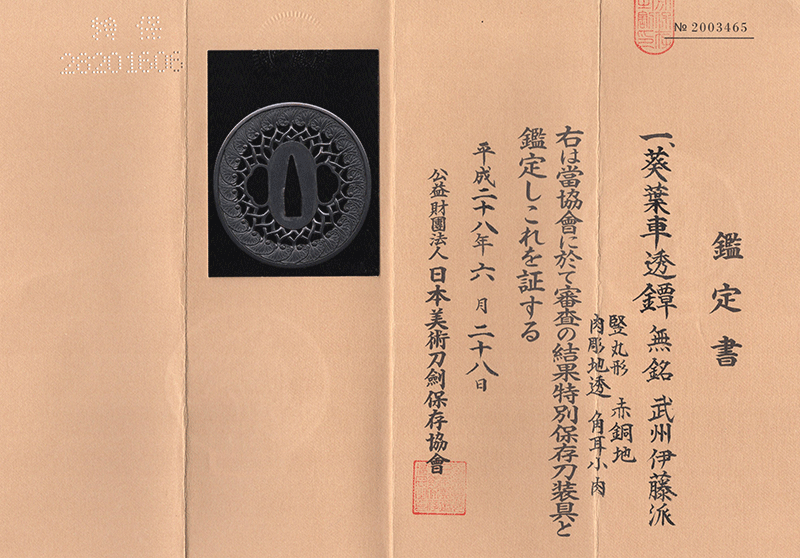 № 2003465
鑑定書
一、葵葉車透鐔 無銘 武州伊藤派
竪丸形 赤銅地
肉彫地透 角耳小肉
右は當協會に於て審査の結果特別保存刀装具と
鑑定しこれを証する
平成二十八年六月二十八日
公益財團法人 日本美術刀劍保存協會
28201606